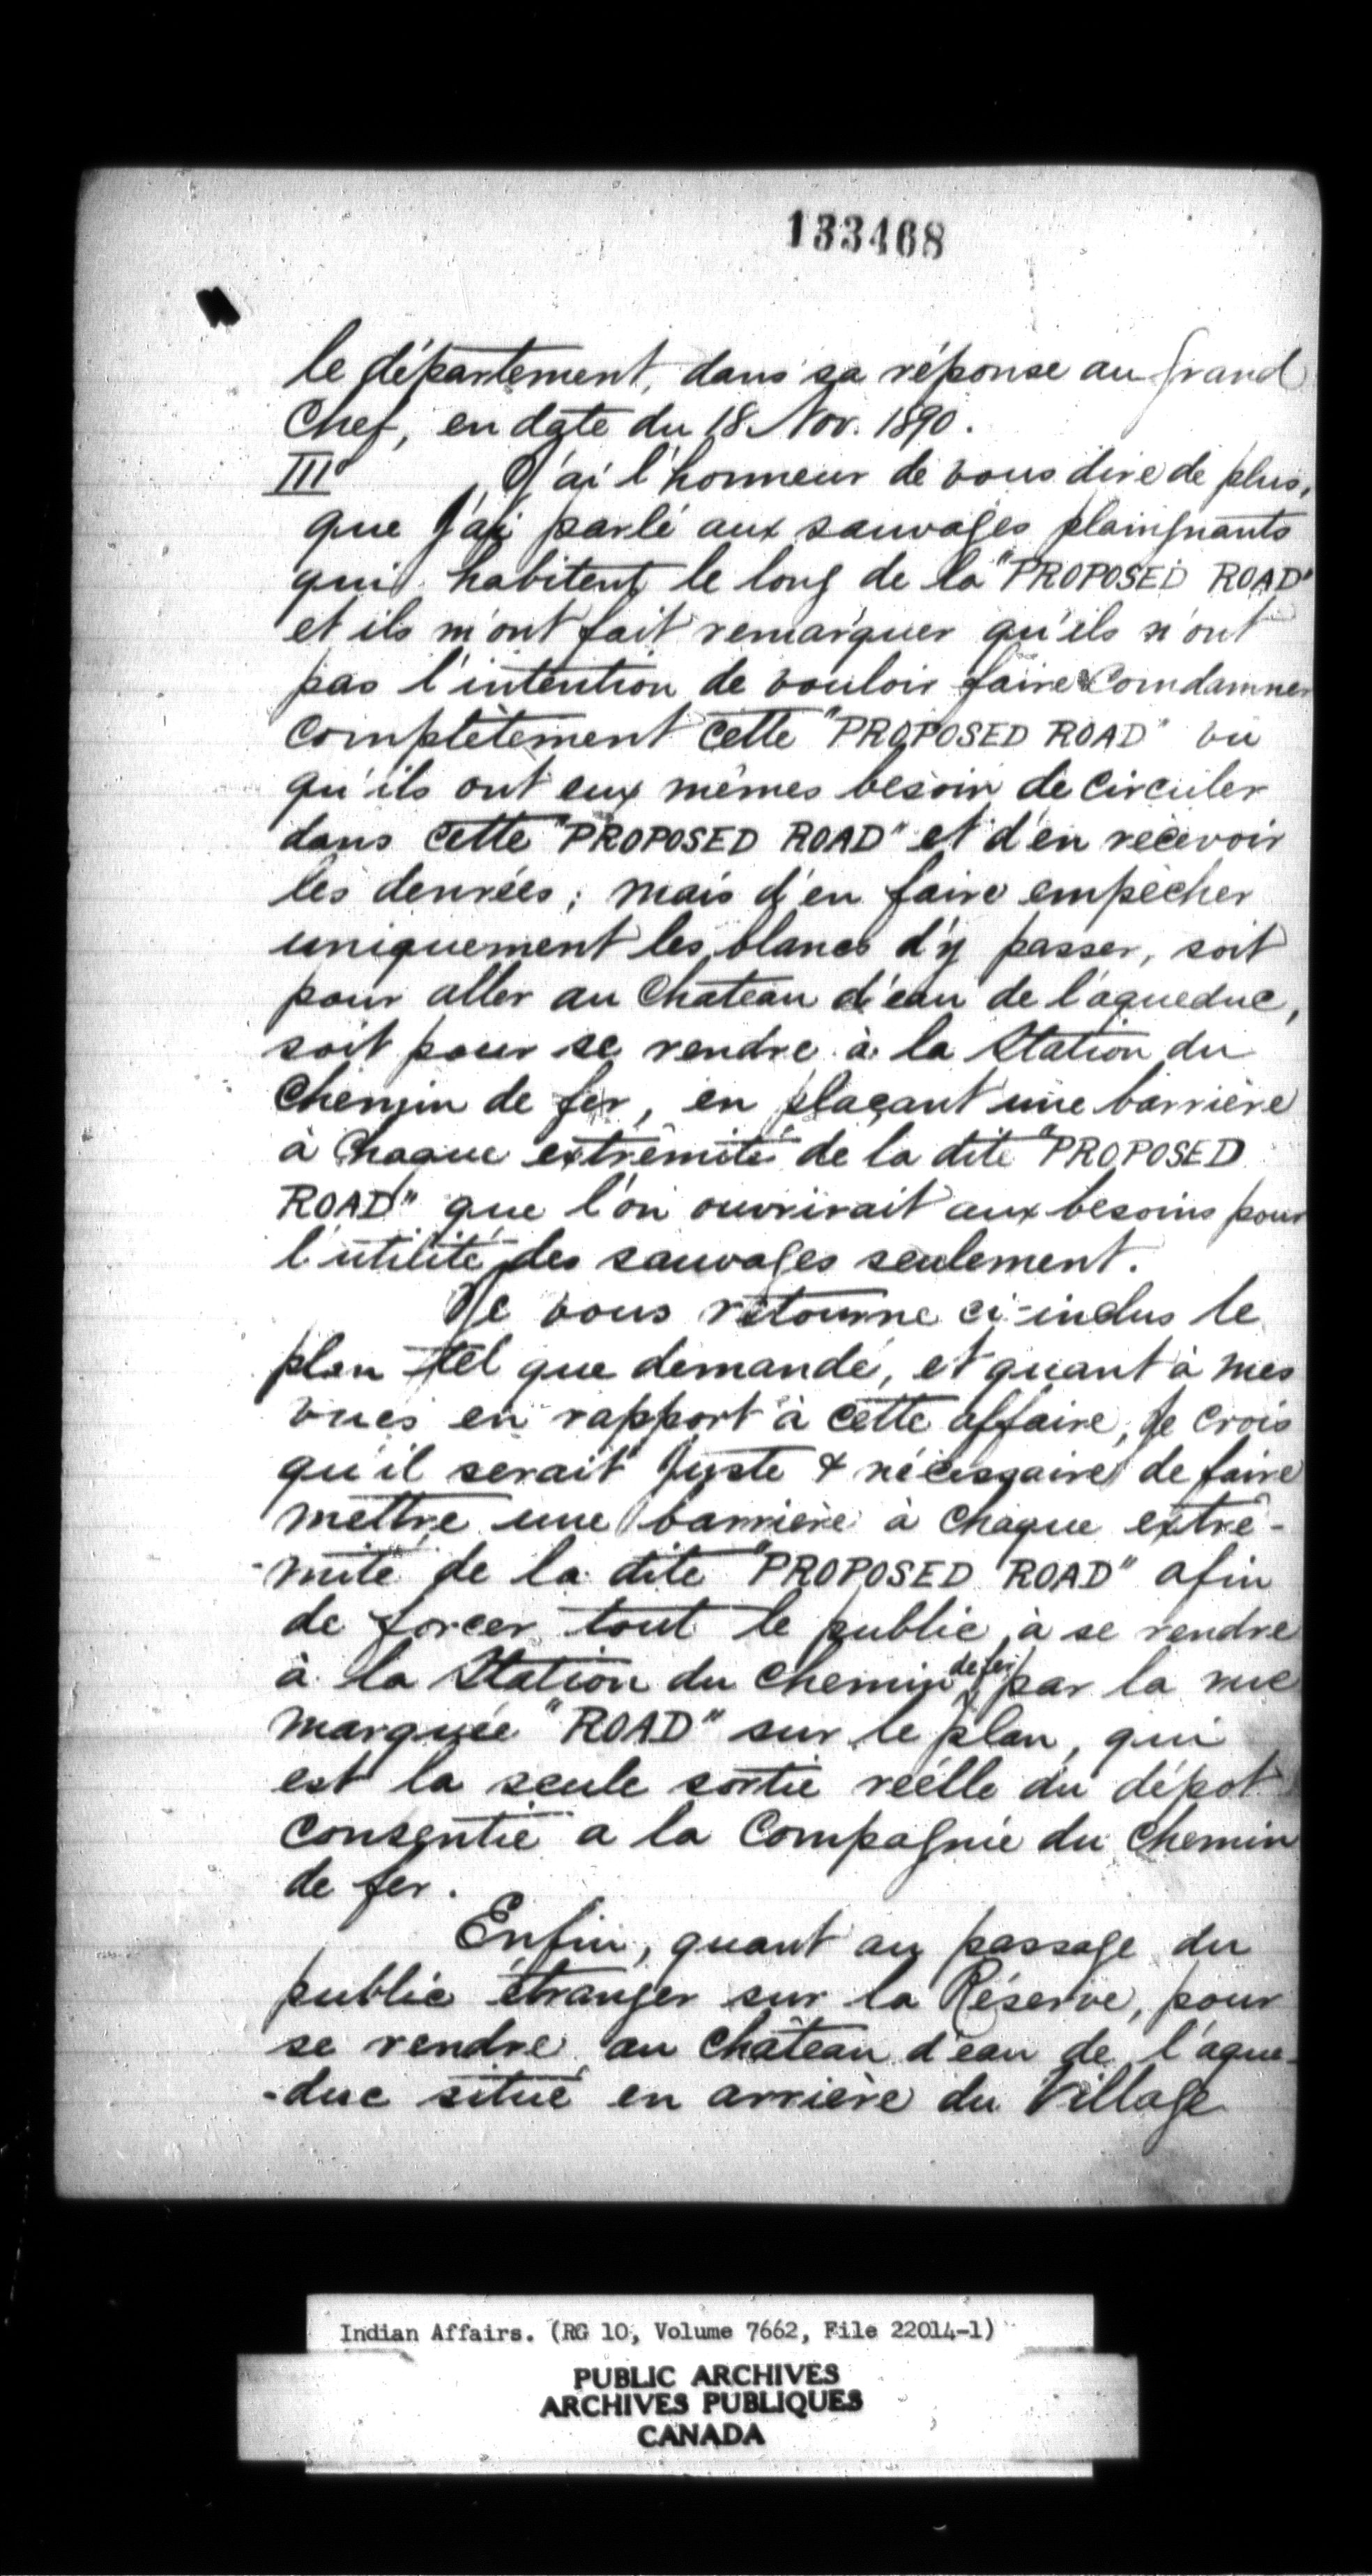 133468
le département, dans sa réponse au Grand
Chef, en date du 18 Nov. 1890.
III° J'ai l'honneur de vous dire de plus,
que J'ai parlé aux sauvages plaingnants
qui habitent le long de la "PROPOSED ROAD"
et ils m'ont fait remarquer qu'ils n'ont
pas l'intention de vouloir faire Comdamner
complètement cette "PROPOSED ROAD" vu
qu'ils ont eux mêmes besoin de circuler
dans cette "PROPOSED ROAD" et d'en recevoir
les denrées; mais d'en faire empêcher
uniquement les blancs d'y passer, soit
pour aller au Chateau d'eau de l'aqueduc,
soit pour se rendre à la Station du
Chemin de fer, en plaçant une barrière
à Chaque extrémité de la dite "PROPOSED
ROAD" que l'on ouvrirait aux besoins pour
l'utilité des sauvages seulement.
Je vous retourne ci-inclus le
plan tel que demandé, et quant à mes
vues en rapport à cette affaire, Je crois
qu'il serait Juste & nécessaire de faire
mettre une barrière à chaque extré-
-mité de la dite "PROPOSED ROAD" afin
de forcer tout le public à se rendre
à la Station du Chemin de fer par la rue
marquée "ROAD" sur le plan, qui
est la seule sortie réélle du dépot
consentie a la Compagnie du Chemin
de fer.
Enfin, quant au passage du
public étranger sur la Réserve, pour
se rendre au Château d'eau de l'aque-
-duc situé en arrière du Village
Indian Affairs. (RG 10, Volume 7662, File 22014-1)
PUBLIC ARCHIVES
ARCHIVES PUBLIQUES
CANADA